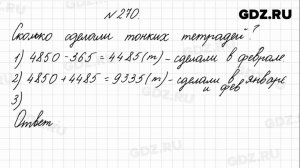 GDZ.RU
№ 270
Сколько сделали тонких тетрадей?
1) 4850 - 365 = 4485 (т) - сделали в феврале
2) 4850 + 4485 = 9335 (т) - сделали в январе
и фев
3)
Ответ